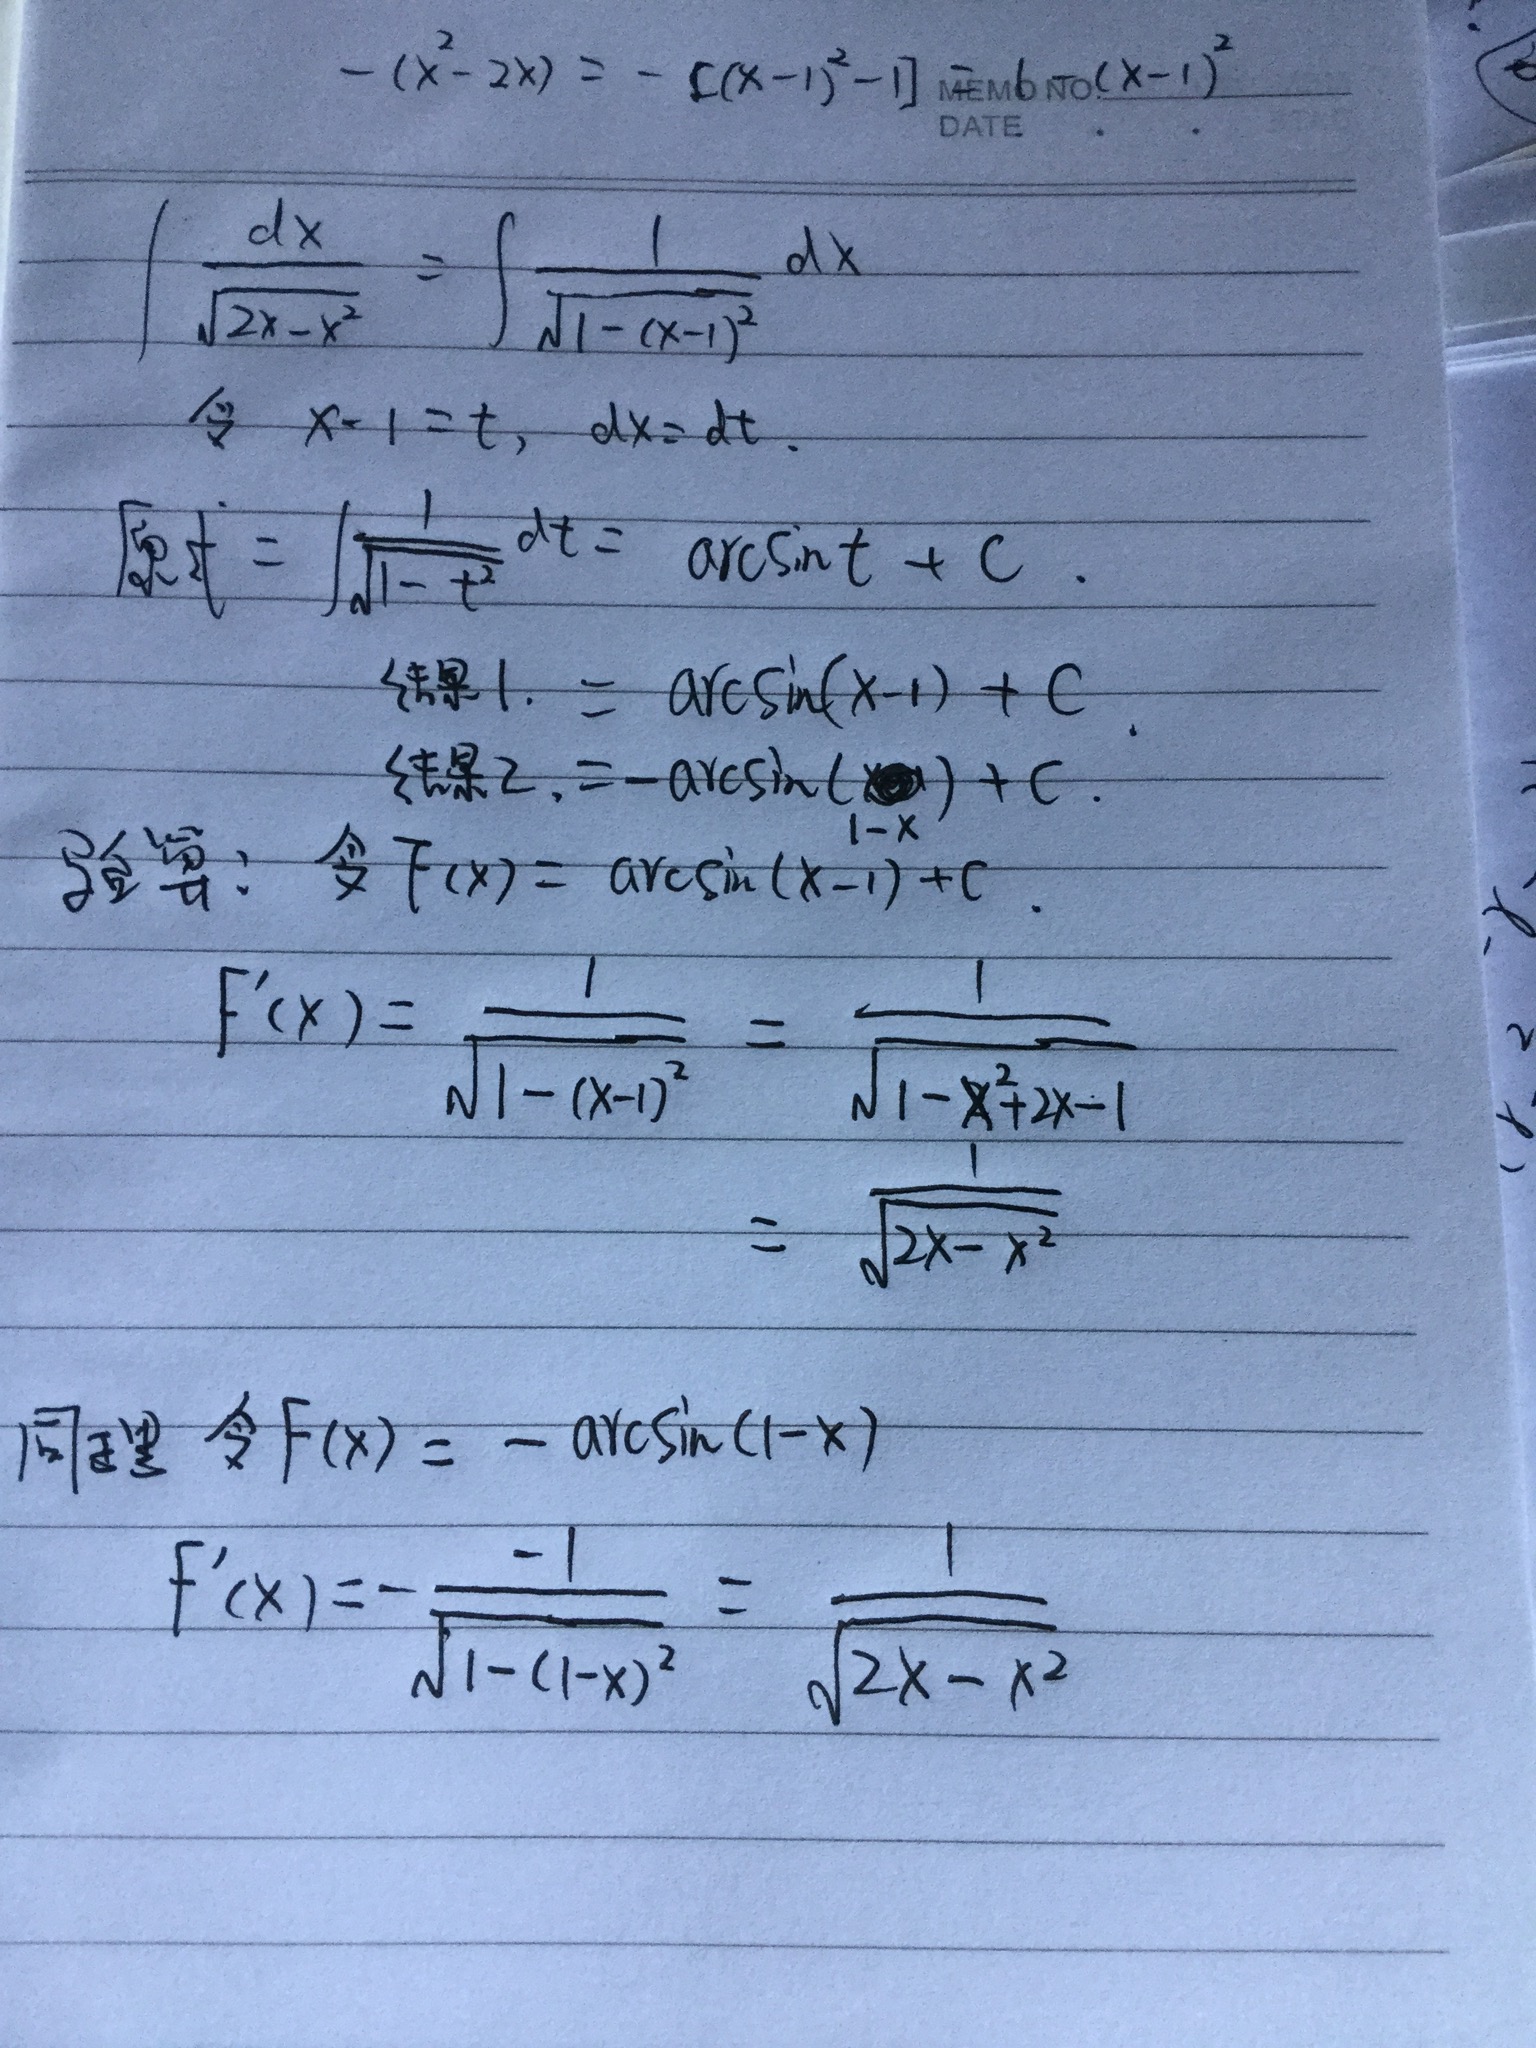 -(x²-2x) = -[(x-1)²-1] = 1-(x-1)²
MEMO NO.
DATE . .
∫ dx/√(2x-x²) = ∫ 1/√(1-(x-1)²) dx
令 x-1=t, dx=dt.
原式 = ∫ 1/√(1-t²) dt = arcsint + C .
结果1. = arcsin(x-1) + C .
结果2. = -arcsin(1-x) + C .
验算: 令F(x) = arcsin(x-1)+C .
F'(x) = 1/√(1-(x-1)²) = 1/√(1-x²+2x-1)
= 1/√(2x-x²)
同理 令F(x) = -arcsin(1-x)
F'(x) = - -1/√(1-(1-x)²) = 1/√(2x-x²)